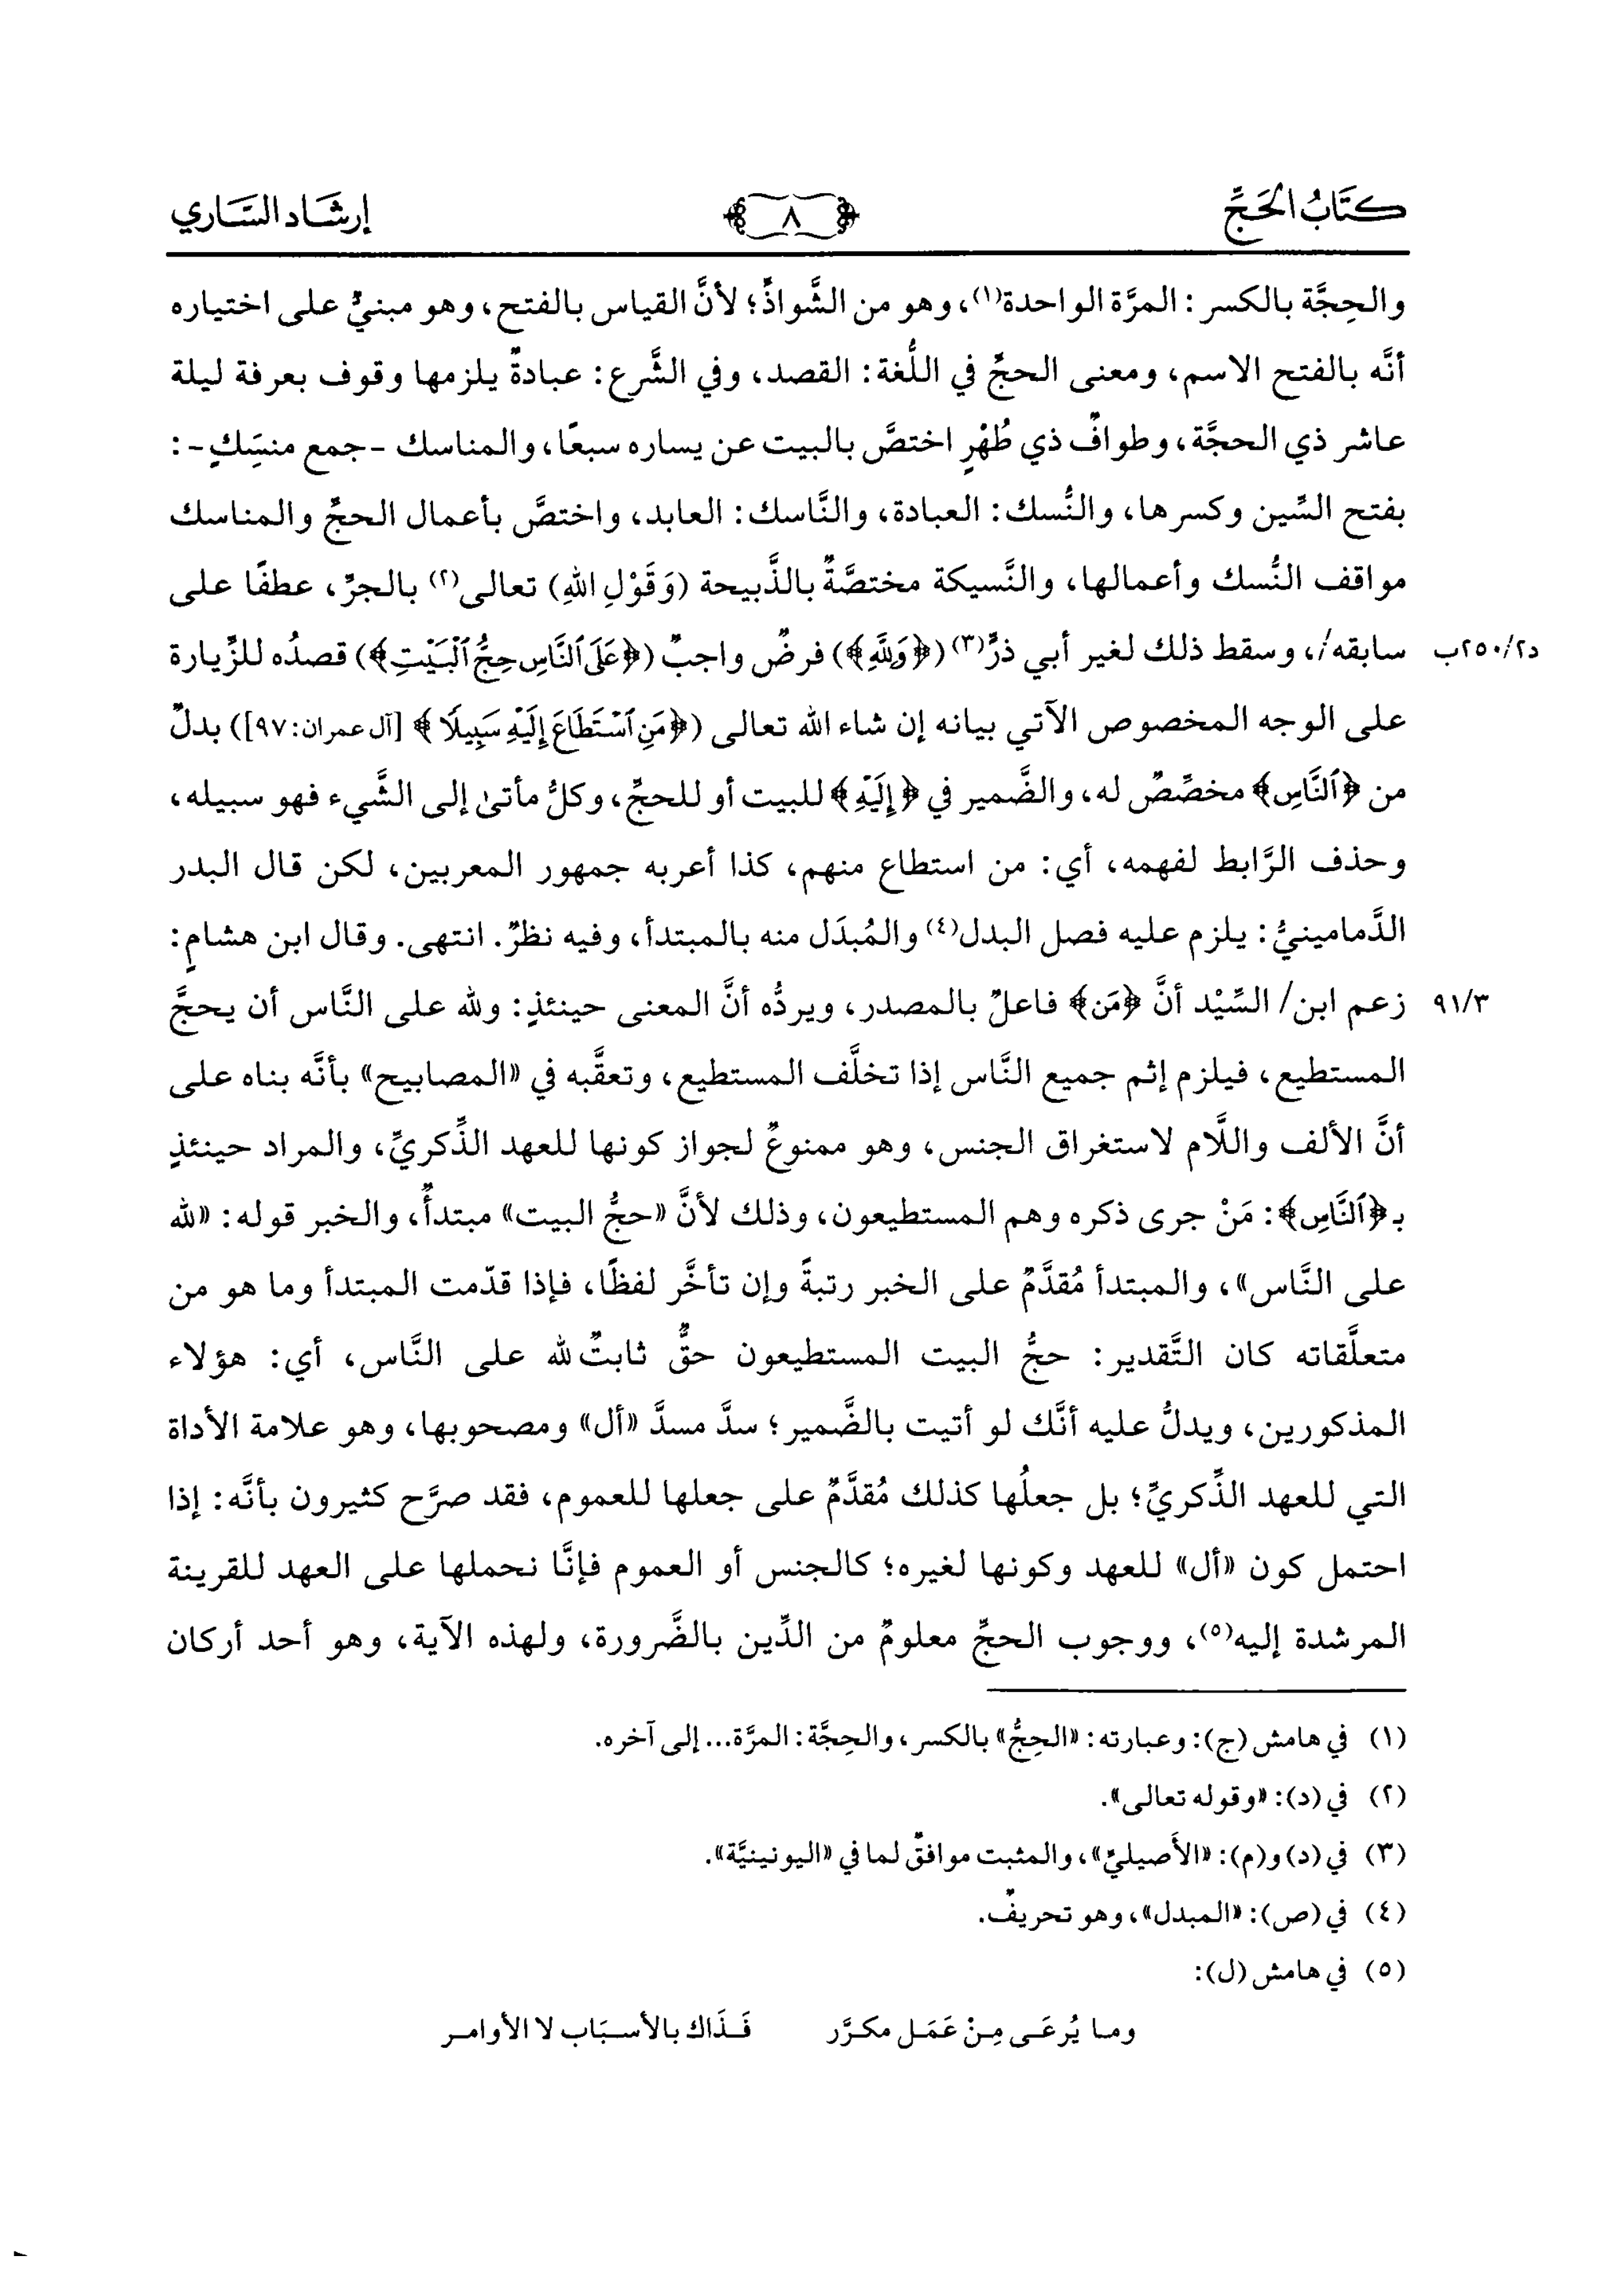 كتاب الحج
٨
إرشاد الساري
والحِجَّة بالكسر: المرَّة الواحدة(١)، وهو من الشَّواذِّ؛ لأنَّ القياس بالفتح، وهو مبنيٌّ على اختياره
أنَّه بالفتح الاسم، ومعنى الحجِّ في اللُّغة: القصد، وفي الشَّرع: عبادةٌ يلزمها وقوف بعرفة ليلة
عاشر ذي الحجَّة، وطوافٌ ذي طُهْرٍ اختصَّ بالبيت عن يساره سبعًا، والمناسك -جمع منسَِكٍ-:
بفتح السِّين وكسرها، والنُّسك: العبادة، والنَّاسك: العابد، واختصَّ بأعمال الحجِّ والمناسك
مواقف النُّسك وأعمالها، والنَّسيكة مختصَّةٌ بالذَّبيحة (وَقَوْلِ اللهِ) تعالى(٢) بالجرِّ، عطفًا على
د٢٥٠/٢ب سابقه/، وسقط ذلك لغير أبي ذرٍّ(٣) (﴿وَلِلَّهِ﴾) فرضٌ واجبٌ (﴿عَلَى ٱلنَّاسِ حِجُّ ٱلْبَيْتِ﴾) قصدُه للزِّيارة
على الوجه المخصوص الآتي بيانه إن شاء الله تعالى (﴿مَنِ ٱسْتَطَاعَ إِلَيْهِ سَبِيلًا﴾ [آل عمران: ٩٧]) بدلٌ
من ﴿ٱلنَّاسِ﴾ مخصِّصٌ له، والضَّمير في ﴿إِلَيْهِ﴾ للبيت أو للحجِّ، وكلُّ مأتىٰ إلى الشَّيء فهو سبيله،
وحذف الرَّابط لفهمه، أي: من استطاع منهم، كذا أعربه جمهور المعربين، لكن قال البدر
الدَّمامينيُّ: يلزم عليه فصل البدل(٤) والمُبدَل منه بالمبتدأ، وفيه نظرٌ. انتهى. وقال ابن هشامٍ:
٩١/٣ زعم ابن/ السِّيْد أنَّ ﴿مَن﴾ فاعلٌ بالمصدر، ويردُّه أنَّ المعنى حينئذٍ: ولله على النَّاس أن يحجَّ
المستطيع، فيلزم إثم جميع النَّاس إذا تخلَّف المستطيع، وتعقَّبه في «المصابيح» بأنَّه بناه على
أنَّ الألف واللَّام لاستغراق الجنس، وهو ممنوعٌ لجواز كونها للعهد الذِّكريِّ، والمراد حينئذٍ
بـ﴿ٱلنَّاسِ﴾: مَنْ جرى ذكره وهم المستطيعون، وذلك لأنَّ «حجُّ البيت» مبتدأٌ، والخبر قوله: «لله
على النَّاس»، والمبتدأ مُقدَّمٌ على الخبر رتبةً وإن تأخَّر لفظًا، فإذا قدّمت المبتدأ وما هو من
متعلَّقاته كان التَّقدير: حجُّ البيت المستطيعون حقٌّ ثابتٌ لله على النَّاس، أي: هؤلاء
المذكورين، ويدلُّ عليه أنَّك لو أتيت بالضَّمير؛ سدَّ مسدَّ «أل» ومصحوبها، وهو علامة الأداة
التي للعهد الذِّكريِّ؛ بل جعلُها كذلك مُقدَّمٌ على جعلها للعموم، فقد صرَّح كثيرون بأنَّه: إذا
احتمل كون «أل» للعهد وكونها لغيره؛ كالجنس أو العموم فإنَّا نحملها على العهد للقرينة
المرشدة إليه(٥)، ووجوب الحجِّ معلومٌ من الدِّين بالضَّرورة، ولهذه الآية، وهو أحد أركان
(١) في هامش (ج): وعبارته: «الحِجُّ» بالكسر، والحِجَّة: المرَّة... إلى آخره.
(٢) في (د): «وقوله تعالى».
(٣) في (د) و(م): «الأَصيليِّ»، والمثبت موافقٌ لما في «اليونينيَّة».
(٤) في (ص): «المبدل»، وهو تحريفٌ.
(٥) في هامش (ل):
وما يُرعَى مِنْ عَمَل مكرَّر فَذَاك بالأسبَاب لا الأوامر